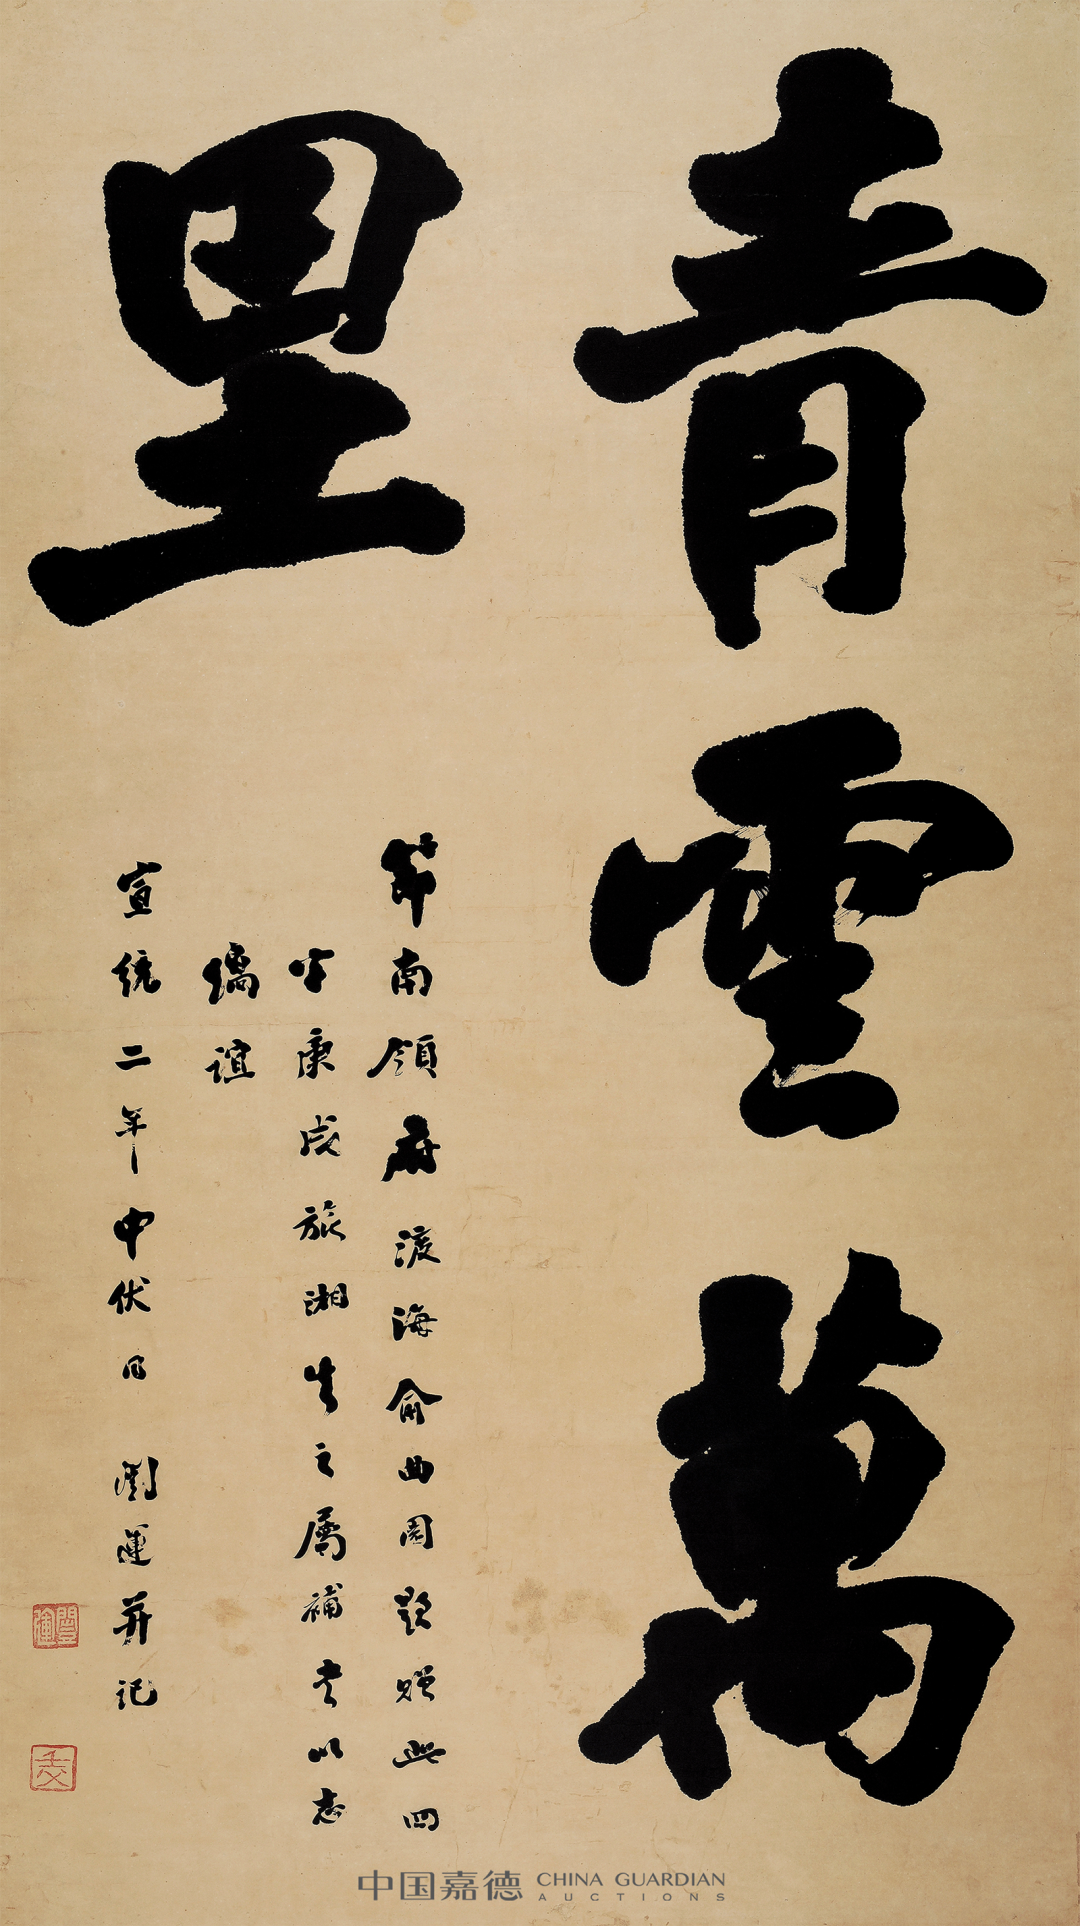 青雲萬
里
節南領府渡海俞曲園題贈此四
字庚戌旅湘生之屬補書以志
縞誼
宣統二年中伏日 闓運并記
中国嘉德 CHINA GUARDIAN
AUCTIONS